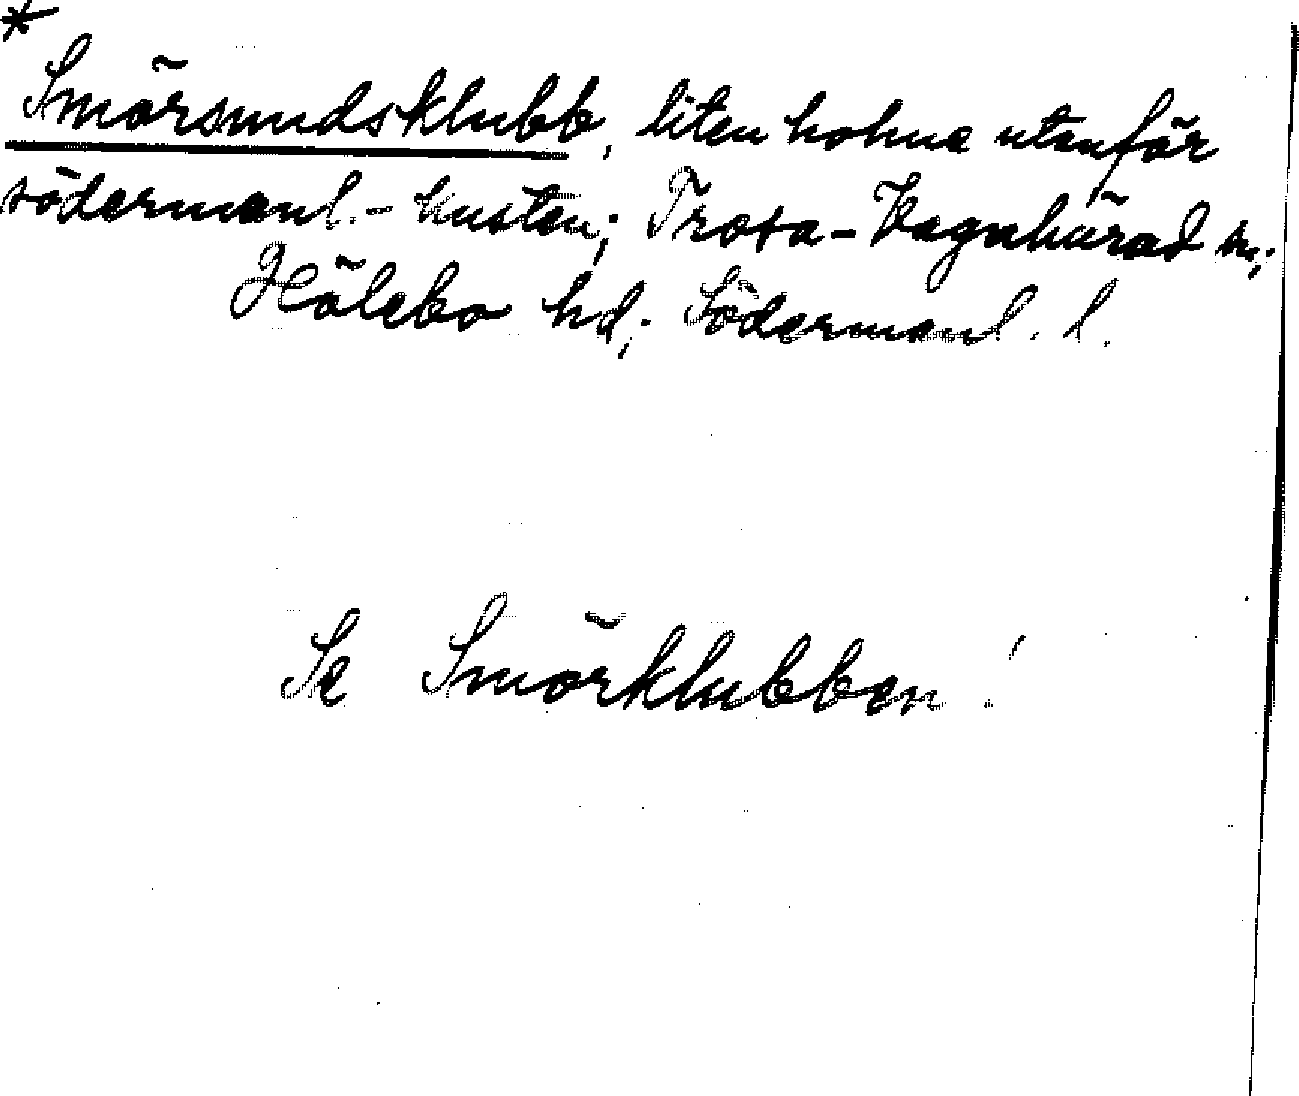 *
Smörsundsklubb, liten holme utanför
södermanl.- kusten; Trosa-Vagnhärad sn;
Hölebo hd; Södermanl. l.
Se Smörklubben!